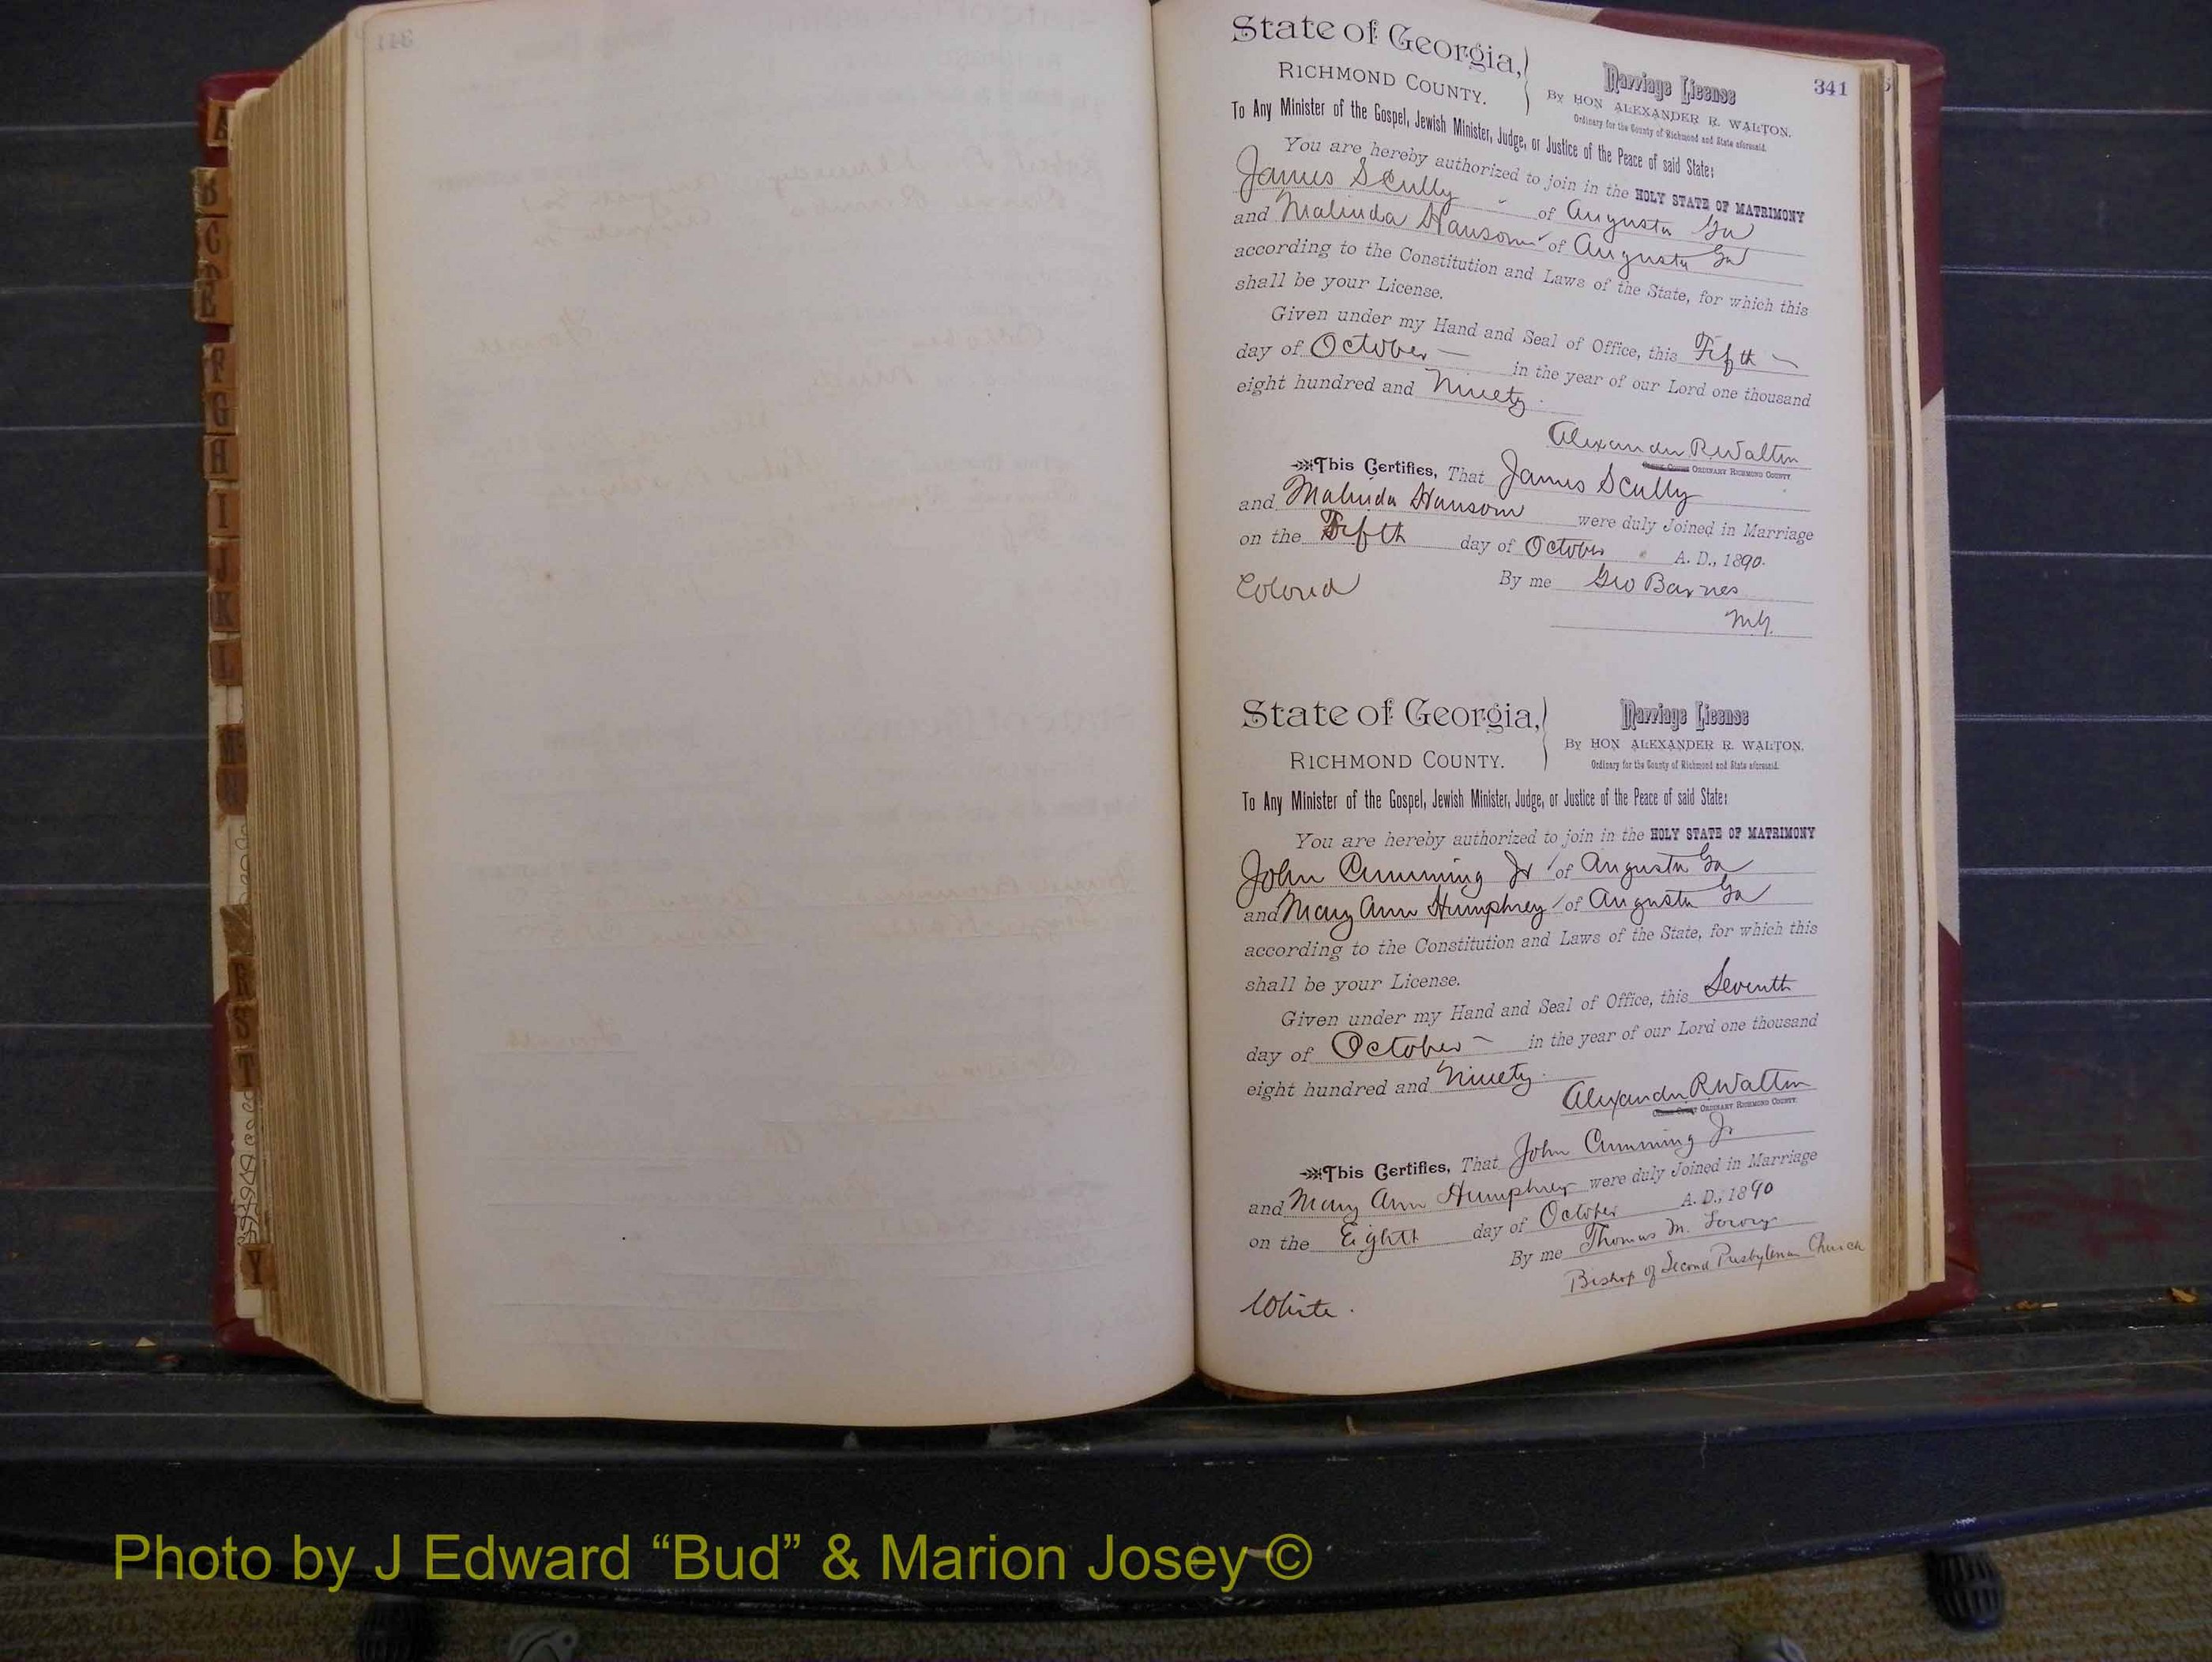 341
State of Georgia,
RICHMOND COUNTY.
Marriage License
By HON ALEXANDER R. WALTON.
Ordinary for the County of Richmond and State aforesaid.
To Any Minister of the Gospel, Jewish Minister, Judge, or Justice of the Peace of said State:
You are hereby authorized to join in the HOLY STATE OF MATRIMONY
James Scully of Augusta Ga
and Malinda Hansom of Augusta Ga
according to the Constitution and Laws of the State, for which this
shall be your License.
Given under my Hand and Seal of Office, this Fifth
day of October in the year of our Lord one thousand
eight hundred and Ninety.
Alexander R Walton
ORDINARY RICHMOND COUNTY
This Certifies, That James Scully
and Malinda Hansom were duly Joined in Marriage
on the Fifth day of October A. D., 1890.
By me Geo Barnes
Colored
M.G.
State of Georgia,
RICHMOND COUNTY.
Marriage License
By HON ALEXANDER R. WALTON.
Ordinary for the County of Richmond and State aforesaid.
To Any Minister of the Gospel, Jewish Minister, Judge, or Justice of the Peace of said State:
You are hereby authorized to join in the HOLY STATE OF MATRIMONY
John Cumming Jr of Augusta Ga
and Mary Ann Humphrey of Augusta Ga
according to the Constitution and Laws of the State, for which this
shall be your License.
Given under my Hand and Seal of Office, this Seventh
day of October in the year of our Lord one thousand
eight hundred and Ninety.
Alexander R Walton
ORDINARY RICHMOND COUNTY.
This Certifies, That John Cumming Jr
and Mary Ann Humphrey were duly Joined in Marriage
on the Eighth day of October A. D., 1890
By me Thomas M. Lowry
Bishop of Second Presbyterian Church
White.
A
B
C
D
E
F
G
H
I
J
K
L
M
N
R
S
T
Y
Photo by J Edward “Bud” & Marion Josey ©